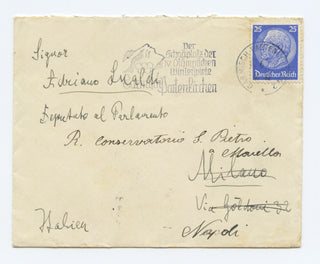 Signor
Adriano Lualdi
Deputato al Parlamento
R. Conservatorio S. Pietro
a Maiella
Milano
Via Goldoni 32
Napoli
Italien
Der
Schauplatz der
Olympischen
Winterspiele
Partenkirchen
25 25
Deutsches Reich